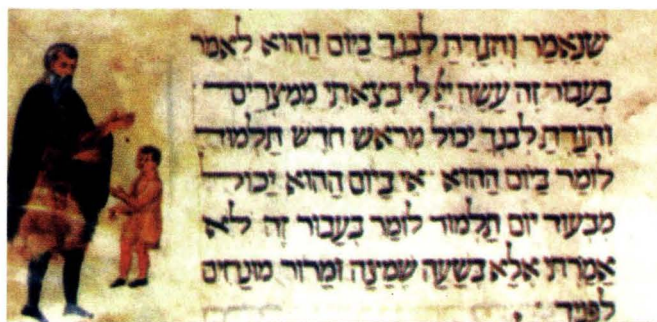 שנאמר והגדת לבנך ביום ההוא לאמר
בעבור זה עשה ייי לי בצאתי ממצרים
והגדת לבנך יכול מראש חדש תלמוד
לומר ביום ההוא אי ביום ההוא יכול
מבעוד יום תלמוד לומר בעבור זה לא
אמרתי אלא בשעה שמצה ומרור מונחים
לפניך